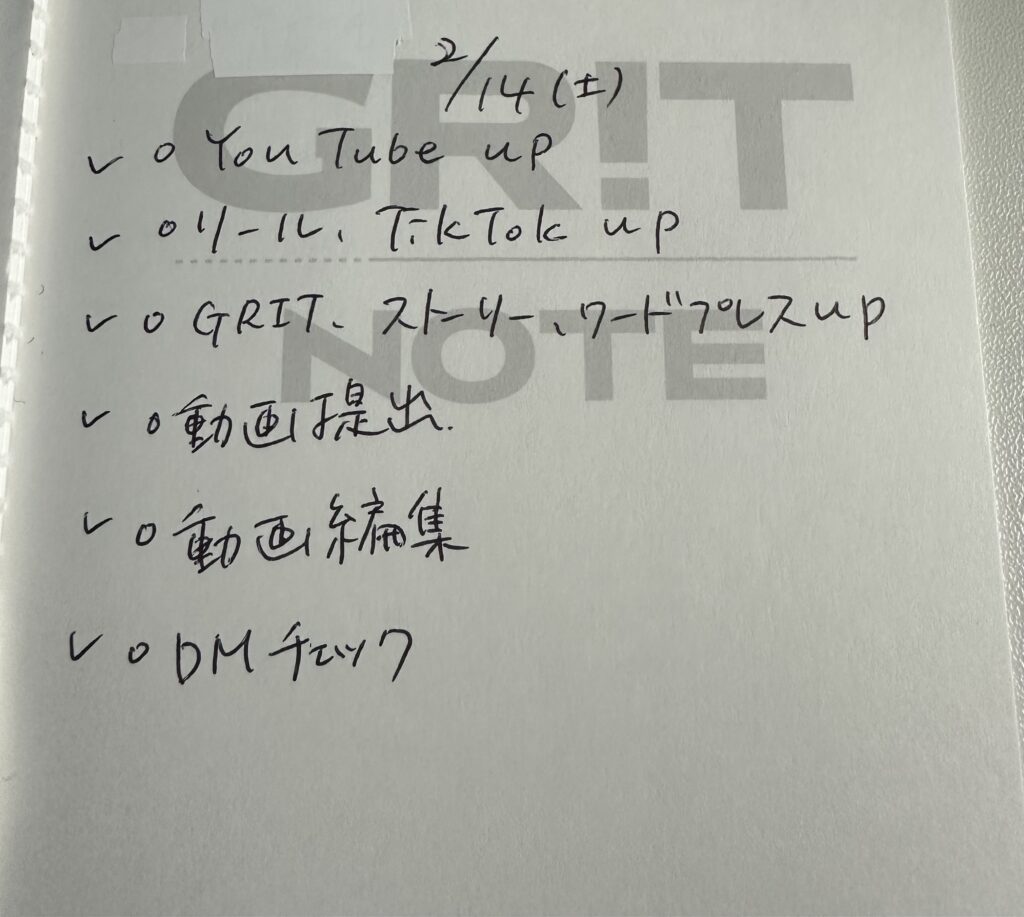 2/14(土)
✓ o YouTube up
✓ o リール、TikTok up
✓ o GRIT、ストーリー、ワードプレスup
✓ o 動画提出.
✓ o 動画編集
✓ o DMチェック
GRIT
NOTE